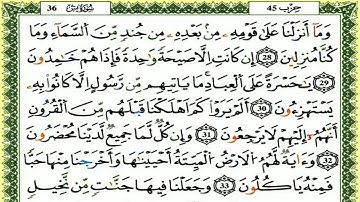 36 سُورَةُ يسٓ حِزْب 45
وَمَا أَنزَلْنَا عَلَىٰ قَوْمِهِ مِنۢ بَعْدِهِ مِن جُندٍ مِّنَ السَّمَآءِ وَمَا
كُنَّا مُنزِلِينَ 28 إِن كَانَتْ إِلَّا صَيْحَةً وَٰحِدَةً فَإِذَا هُمْ خَٰمِدُونَ
29 يَٰحَسْرَةً عَلَى الْعِبَادِ مَا يَاتِيهِم مِّن رَّسُولٍ إِلَّا كَانُوا بِهِ
يَسْتَهْزِءُونَ 30 أَلَمْ يَرَوْا كَمْ أَهْلَكْنَا قَبْلَهُم مِّنَ الْقُرُونِ
أَنَّهُمْ إِلَيْهِمْ لَا يَرْجِعُونَ 31 وَإِن كُلٌّ لَّمَا جَمِيعٌ لَّدَيْنَا مُحْضَرُونَ
32 وَءَايَةٌ لَّهُمُ الْأَرْضُ الْمَيِّتَةُ أَحْيَيْنَٰهَا وَأَخْرَجْنَا مِنْهَا حَبًّا
فَمِنْهُ يَاكُلُونَ 33 وَجَعَلْنَا فِيهَا جَنَّٰتٍ مِّن نَّخِيلٍ